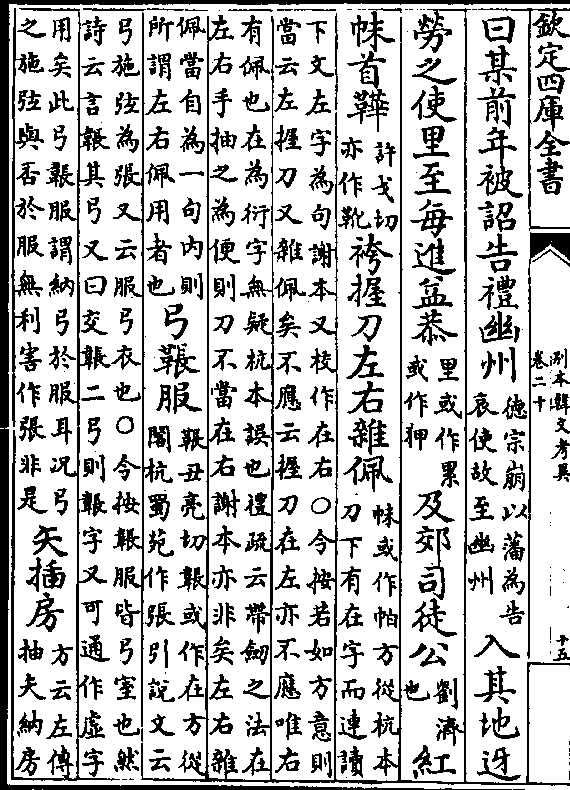 欽定四庫全書
別本韓文考異
卷二十
十五
曰某前年被詔告禮幽州
德宗崩以藩為告
哀使故至幽州
入其地迓
勞之使里至每進益恭
里或作累
或作狎
及郊司徒公
劉濟
也
紅
帓首鞾
許戈切
亦作靴
袴握刀左右雜佩
帓或作帕方從杭本
刀下有在字而連讀
下文左字為句謝本又校作在右○今按若如方意則
當云左握刀又雜佩矣不應云握刀在左亦不應唯右
有佩也在為衍字無疑杭本誤也禮疏云帶劒之法在
左右手抽之為便則刀不當在右謝本亦非矣左右雜
佩當自為一句内則
所謂左右佩用者也
弓韔服
韔丑亮切韔或作在方從
閣杭蜀苑作張引說文云
弓施弦為張又云服弓衣也○今按韔服皆弓室也然
詩云言韔其弓又曰交韔二弓則韔字又可通作虛字
用矣此弓韔服謂納弓於服耳况弓
之施弦與否於服無利害作張非是
矢插房
方云左傳
抽矢納房